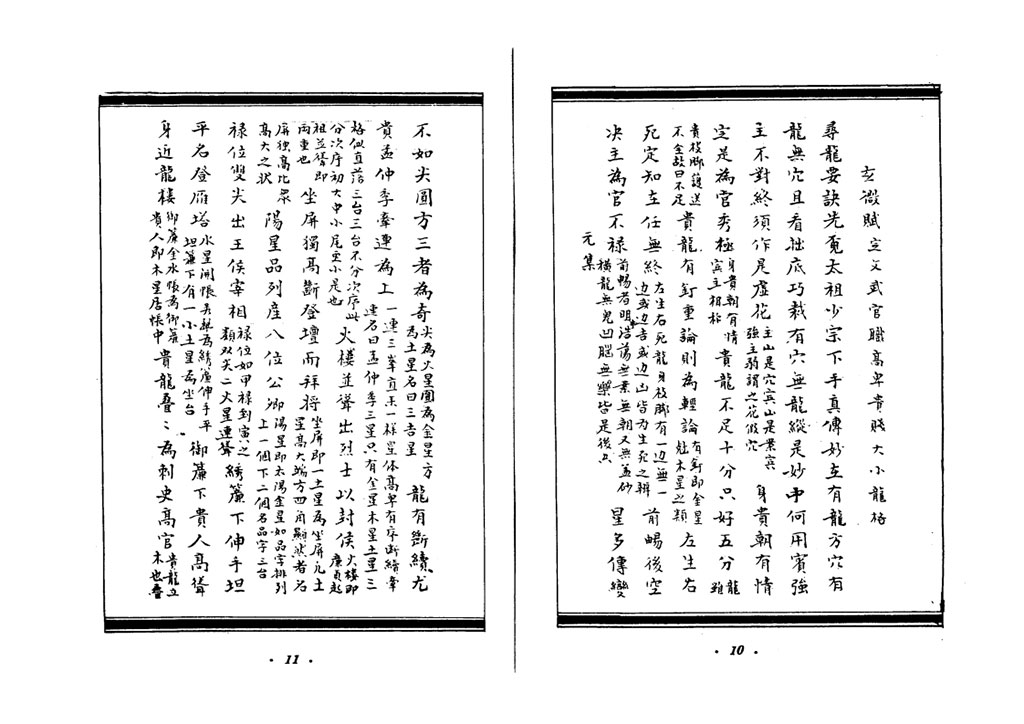 玄微賦 定文武官職高卑貴賤大小龍格
尋龍要訣先覓太祖少宗下手真傳妙在有龍方穴有
龍無穴且看拙底巧裁有穴無龍縱是妙中何用賓強
主不對終須作是虛花主山是穴賓山是案賓強主弱謂之花假穴 身貴朝有情
定是為官秀極身貴朝有情賓主相称 貴龍不足十分只好五分龍雖
貴枝脚護送不全故曰不足 貴龍有釘重論則為輕論有釘即金星尅木星之類 左生右
死定知在任無終左生右死龍身枝脚有一边無一边或边吉或边凶皆为生死之辨 前暢後空
决主為官不禄前暢者明浩蕩無案無朝又無盖砂橫龍無鬼凹腦無樂皆是後空 星多傳變
元集
不如尖圓方三者為奇尖為火星圓為金星方為土星名曰三吉星 龍有斷續尤
貴孟仲季牽連為上一連三峯直来一樣星体高卑有序断續牽連名曰孟仲季三星只有金星木星土星三
格似直落三台三台不分次序此分次序初大中小尾更小是也 火樓並聳出烈士以封侯火樓即廉貞起
祖並聳即兩重也 坐屏獨高斷登壇而拜將坐屏即一土星為坐屏凡土星高大端方四角顯然者名
屏独高比眾高大之状 陽星品列產八位公卿湯星即太陽金星如品字排列上一個下二個名品字三台
禄位雙尖出王侯宰相禄位如甲禄到寅之類双尖二火星連聳 綉簾下伸手坦
平名登雁塔水星開帳 為綉簾伸手平坦簾下有一小土星為坐台 御簾下貴人高聳
身近龍樓御簾金水帳為御簾貴人即木星居帳中 貴龍叠〻為刺史高官貴龍立木也叠
· 10 ·
· 11 ·